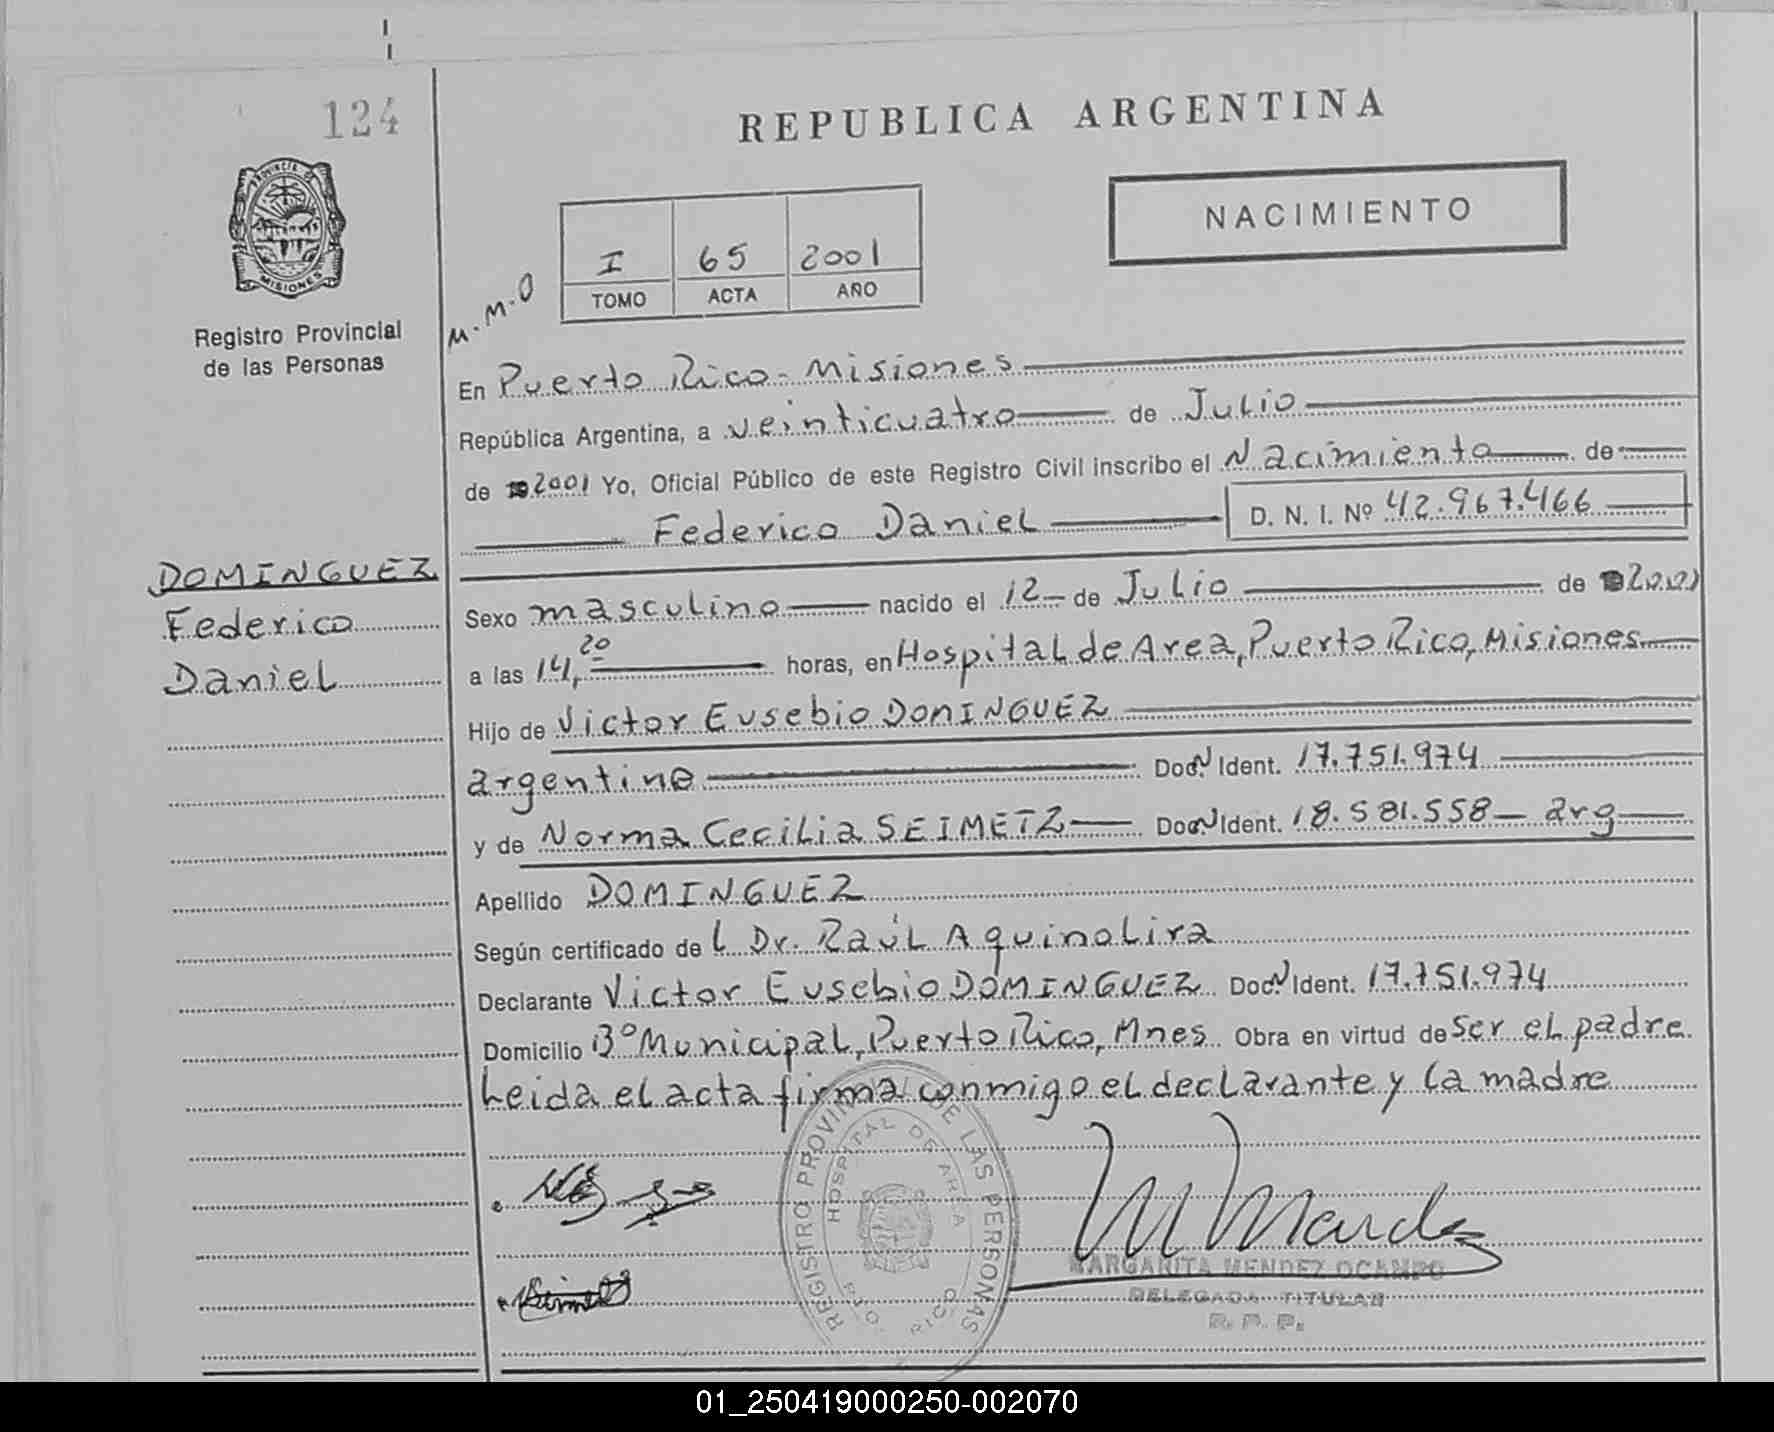 124
REPUBLICA ARGENTINA
PROVINCIA DE
MISIONES
Registro Provincial
de las Personas
NACIMIENTO
I 65 2001
TOMO ACTA AÑO
M.M.O
En Puerto Rico - Misiones
República Argentina, a veinticuatro de Julio
de 2001 Yo, Oficial Público de este Registro Civil inscribo el Nacimiento de
Federico Daniel D. N. I. Nº 42.967.466
DOMINGUEZ
Federico
Daniel
Sexo masculino nacido el 12 de Julio de 2001
a las 14,20 horas, en Hospital de Area, Puerto Rico, Misiones
Hijo de Victor Eusebio DOMINGUEZ
argentino Doc. N Ident. 17.751.974
y de Norma Cecilia SEIMETZ Doc. N Ident. 18.581.558 - arg
Apellido DOMINGUEZ
Según certificado de l Dr. Raúl Aquino Lira
Declarante Victor Eusebio DOMINGUEZ Doc. N Ident. 17.751.974
Domicilio Bº Municipal, Puerto Rico, Mnes Obra en virtud de ser el padre
Leida el acta firma conmigo el declarante y la madre
REGISTRO PROVINCIAL DE LAS PERSONAS
HOSPITAL DE AREA
PTO. RICO
M Mendez
MARGARITA MENDEZ OCAMPO
DELEGADA TITULAR
R. P. P.
01_250419000250-002070